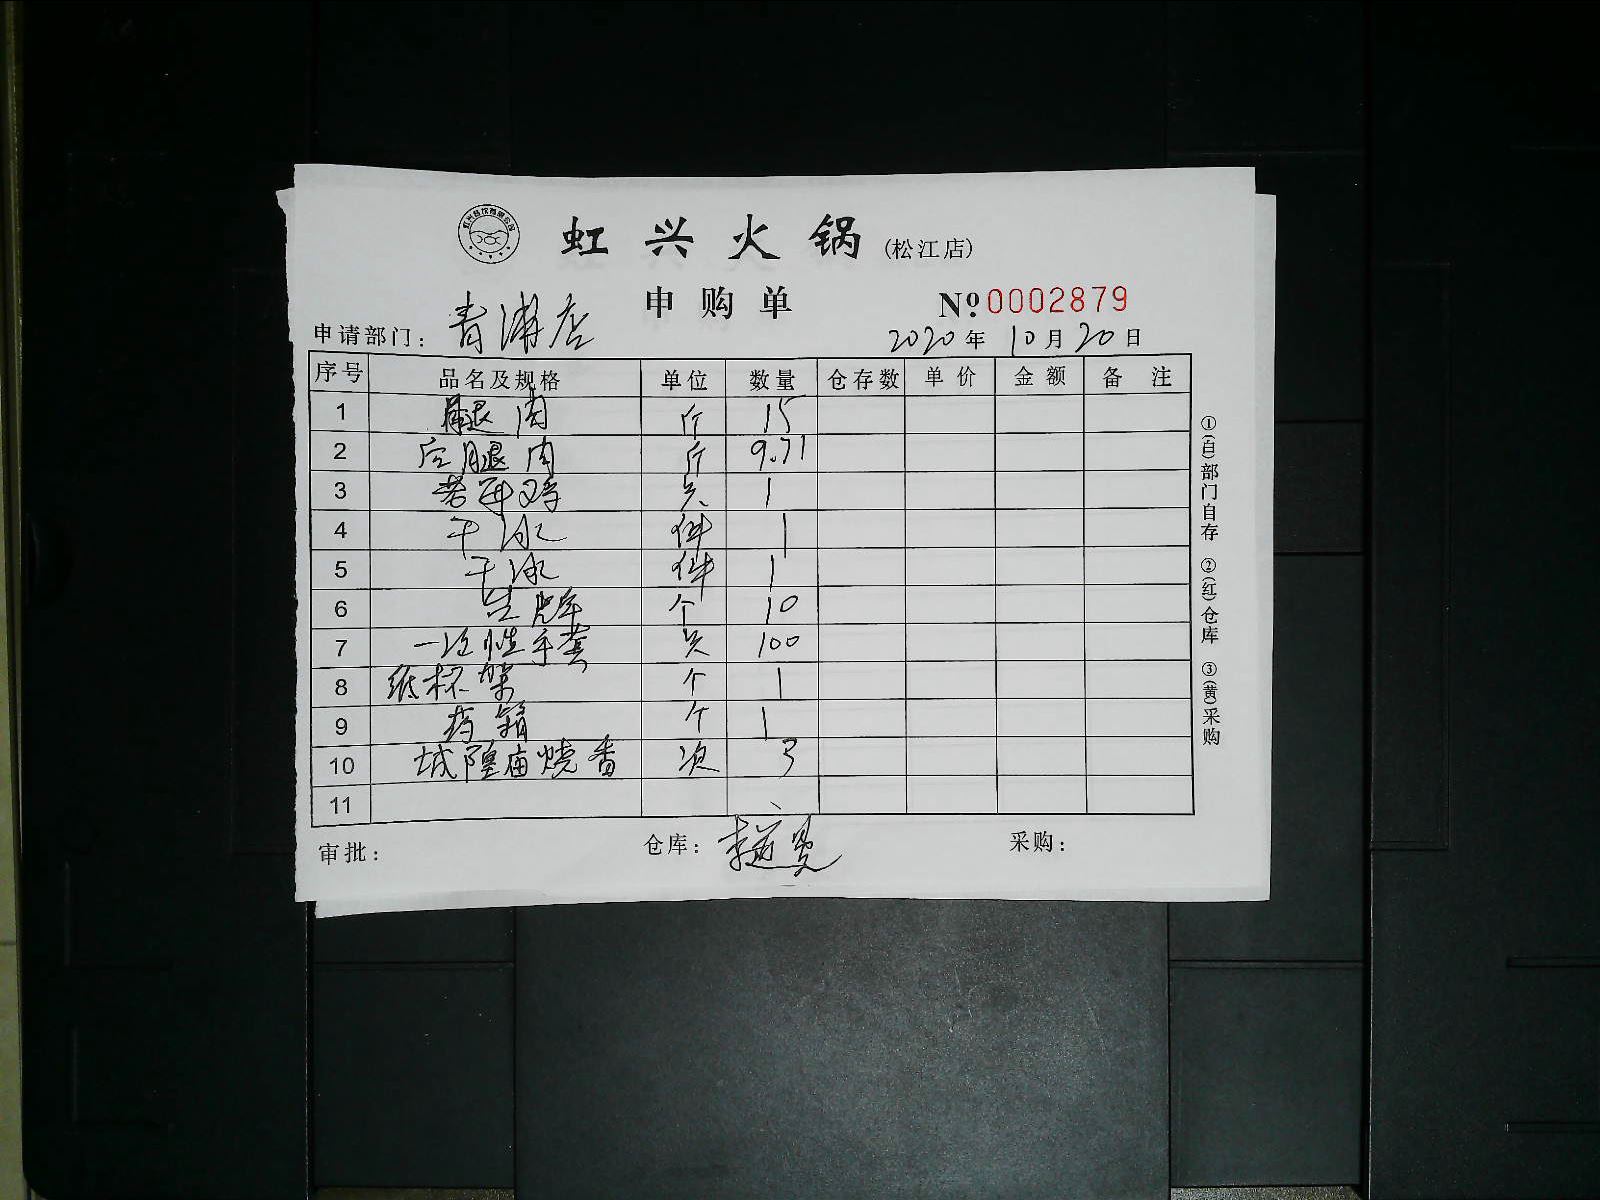 虹兴火锅(松江店)
申购单
No 0002879
申请部门：青浦店
2020年10月20日
序号 品名及规格 单位 数量 仓存数 单价 金额 备注
1 腿肉 斤 15
2 后腿肉 斤 9.71
3 老母鸡 只 1
4 干冰 件 1
5 干冰 件 1
6 生蚝 个 10
7 一次性手套 只 100
8 纸杯架 个 1
9 药箱 个 1
10 城隍庙烧香 次 3
11
审批： 仓库： 采购：
①(白)部门自存 ②(红)仓库 ③(黄)采购